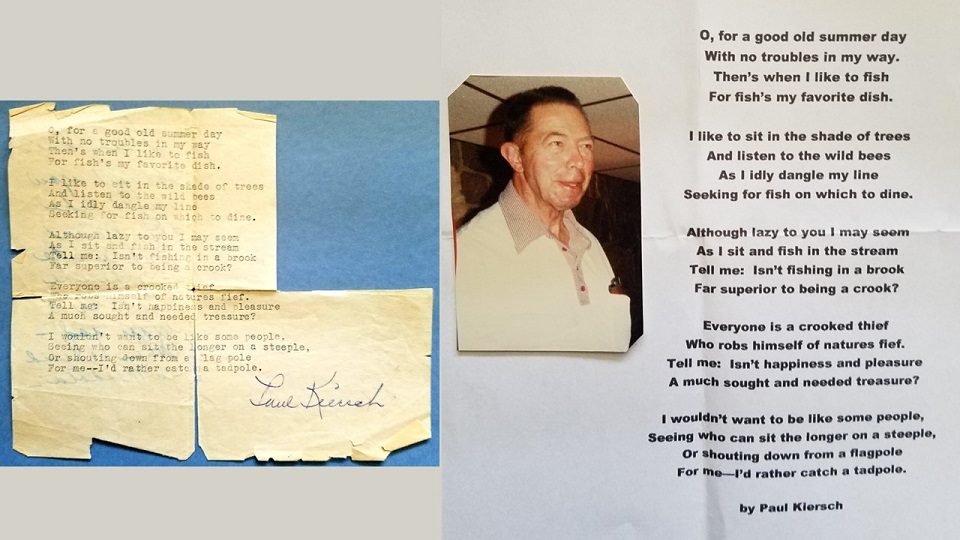 O, for a good old summer day
With no troubles in my way
Then's when I like to fish
For fish's my favorite dish.
I like to sit in the shade of trees
And listen to the wild bees
As I idly dangle my line
Seeking for fish on which to dine.
Although lazy to you I may seem
As I sit and fish in the stream
Tell me: Isn't fishing in a brook
Far superior to being a crook?
Everyone is a crooked thief
Who robs himself of natures fief.
Tell me: Isn't happiness and pleasure
A much sought and needed treasure?
I wouldn't want to be like some people,
Seeing who can sit the longer on a steeple,
Or shouting down from a flag pole
For me--I'd rather catch a tadpole.
Paul Kiersch
O, for a good old summer day
With no troubles in my way.
Then's when I like to fish
For fish's my favorite dish.
I like to sit in the shade of trees
And listen to the wild bees
As I idly dangle my line
Seeking for fish on which to dine.
Although lazy to you I may seem
As I sit and fish in the stream
Tell me: Isn't fishing in a brook
Far superior to being a crook?
Everyone is a crooked thief
Who robs himself of natures fief.
Tell me: Isn't happiness and pleasure
A much sought and needed treasure?
I wouldn't want to be like some people,
Seeing who can sit the longer on a steeple,
Or shouting down from a flagpole
For me—I'd rather catch a tadpole.
by Paul Kiersch